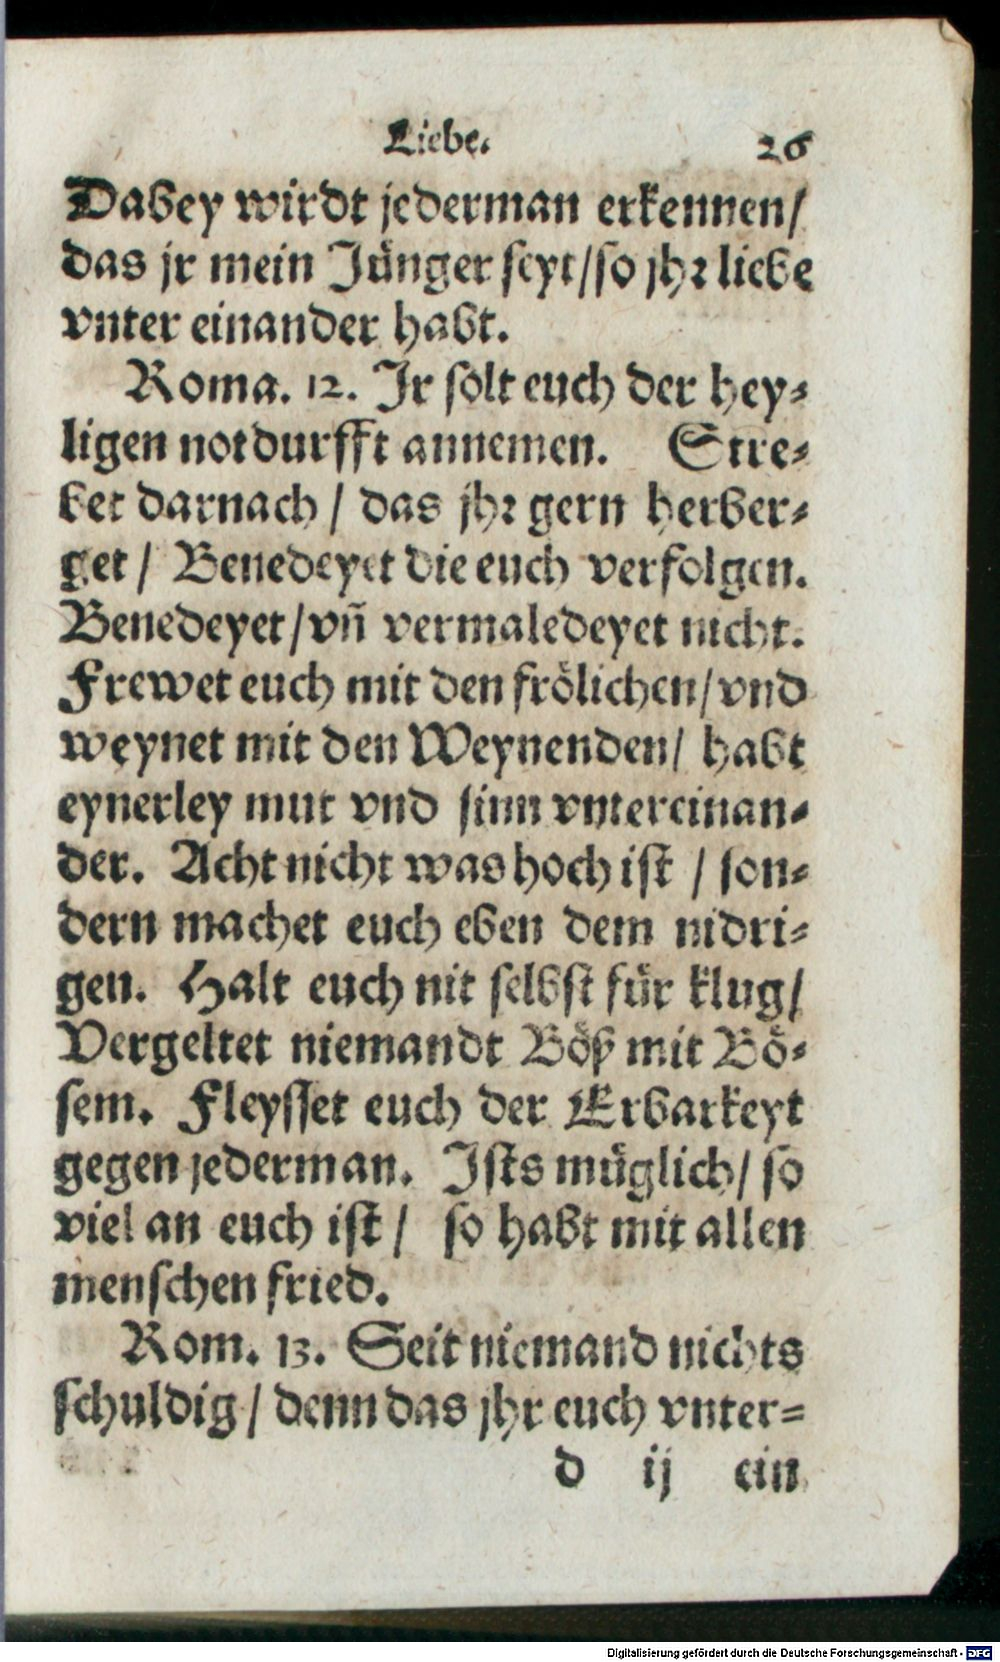 Liebe. 26
Dabey wirdt jederman erkennen/
das jr mein Jünger seyt/so jhr liebe
vnter einander habt.
Roma. 12. Jr solt euch der hey-
ligen notdurfft annemen. Stre-
bet darnach / das jhr gern herber-
get / Benedeyet die euch verfolgen.
Benedeyet/vñ vermaledeyet nicht.
Frewet euch mit den frölichen/vnd
weynet mit den Weynenden/ habt
eynerley mut vnd sinn vntereinan-
der. Acht nicht was hoch ist / son-
dern machet euch eben dem nidri-
gen. Halt euch nit selbst für klug/
Vergeltet niemandt Böß mit Bö-
sem. Fleysset euch der Erbarkeyt
gegen jederman. Ists müglich/ so
viel an euch ist / so habt mit allen
menschen fried.
Rom. 13. Seit niemand nichts
schuldig / denn das jhr euch vnter-
d ij ein
Digitalisierung gefördert durch die Deutsche Forschungsgemeinschaft - DFG